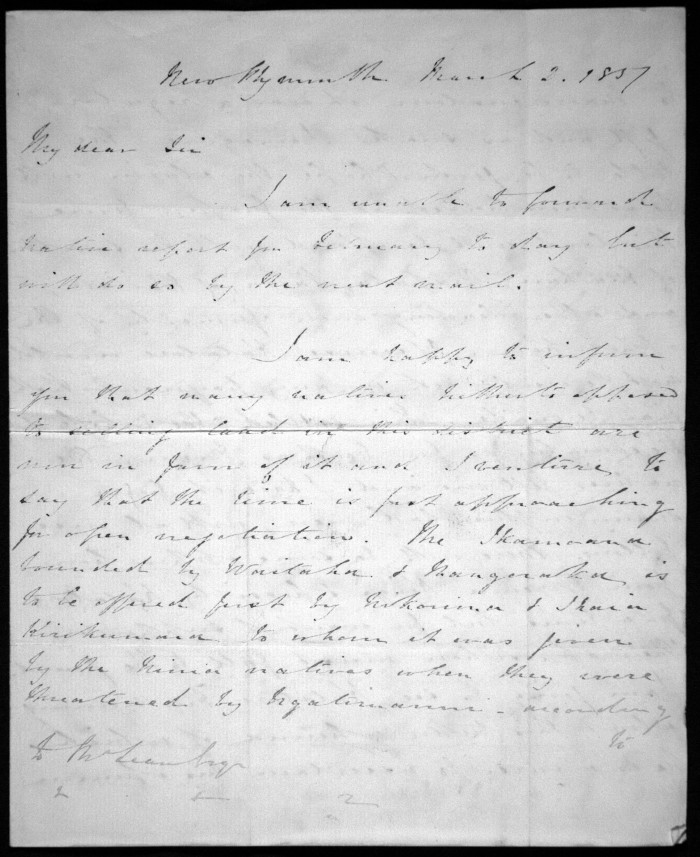 New Plymouth March 2. 1857
My dear Sir
I am unable to forward
native report for February to day but
will do so by the next mail.
I am happy to inform
you that many natives hitherto opposed
to selling land in this district are
now in favor of it and I venture to
say that the time is fast approaching
for open negotiation. The Ikamoana
bounded by Waitaha & Mangoraka is
to be offered first by Nikorima & Ihaia
Kirikumara to whom it was given
by the Ninia natives when they were
threatened by Ngatimaru - according
to
D McLean Esqr